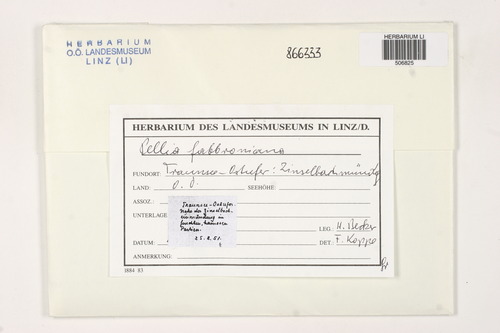 HERBARIUM
O.Ö. LANDESMUSEUM
LINZ (LI)
866333
HERBARIUM LI
506825
HERBARIUM DES LANDESMUSEUMS IN LINZ/D.
Pellia fabbroniana
FUNDORT: Traunsee-Ostufer: Zinselbachmündg
LAND: O. Ö. SEEHÖHE:
ASSOZ.:
UNTERLAGE
Traunsee-Ostufer.
Nähe der Zinselbach-
einmündung in
feuchten,
Partien.
25.8.51.
LEG.: H. Becker
DATUM: DET.: F. Koppe
ANMERKUNG:
I884 83